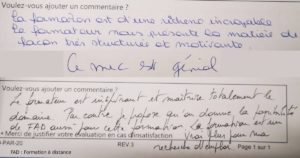 Voulez-vous ajouter un commentaire ?
La formation est d'une richesse incroyable
Le formateur nous présente la matière de
façon très structurée et motivante.
Ce mec est génial
Voulez-vous ajouter un commentaire ?
Le formateur est intéressant et maitrise totalement le
domaine. Par contre je propose qu'on donne la possibilité
de FAD aussi pour cette formation. La formation est un
vrai plus pour ma
• Merci de justifier votre évaluation en cas d'insatisfaction
recherche d'emploi
-PAR-20 REV.3 Page 1 sur 1
FAD : Formation à distance